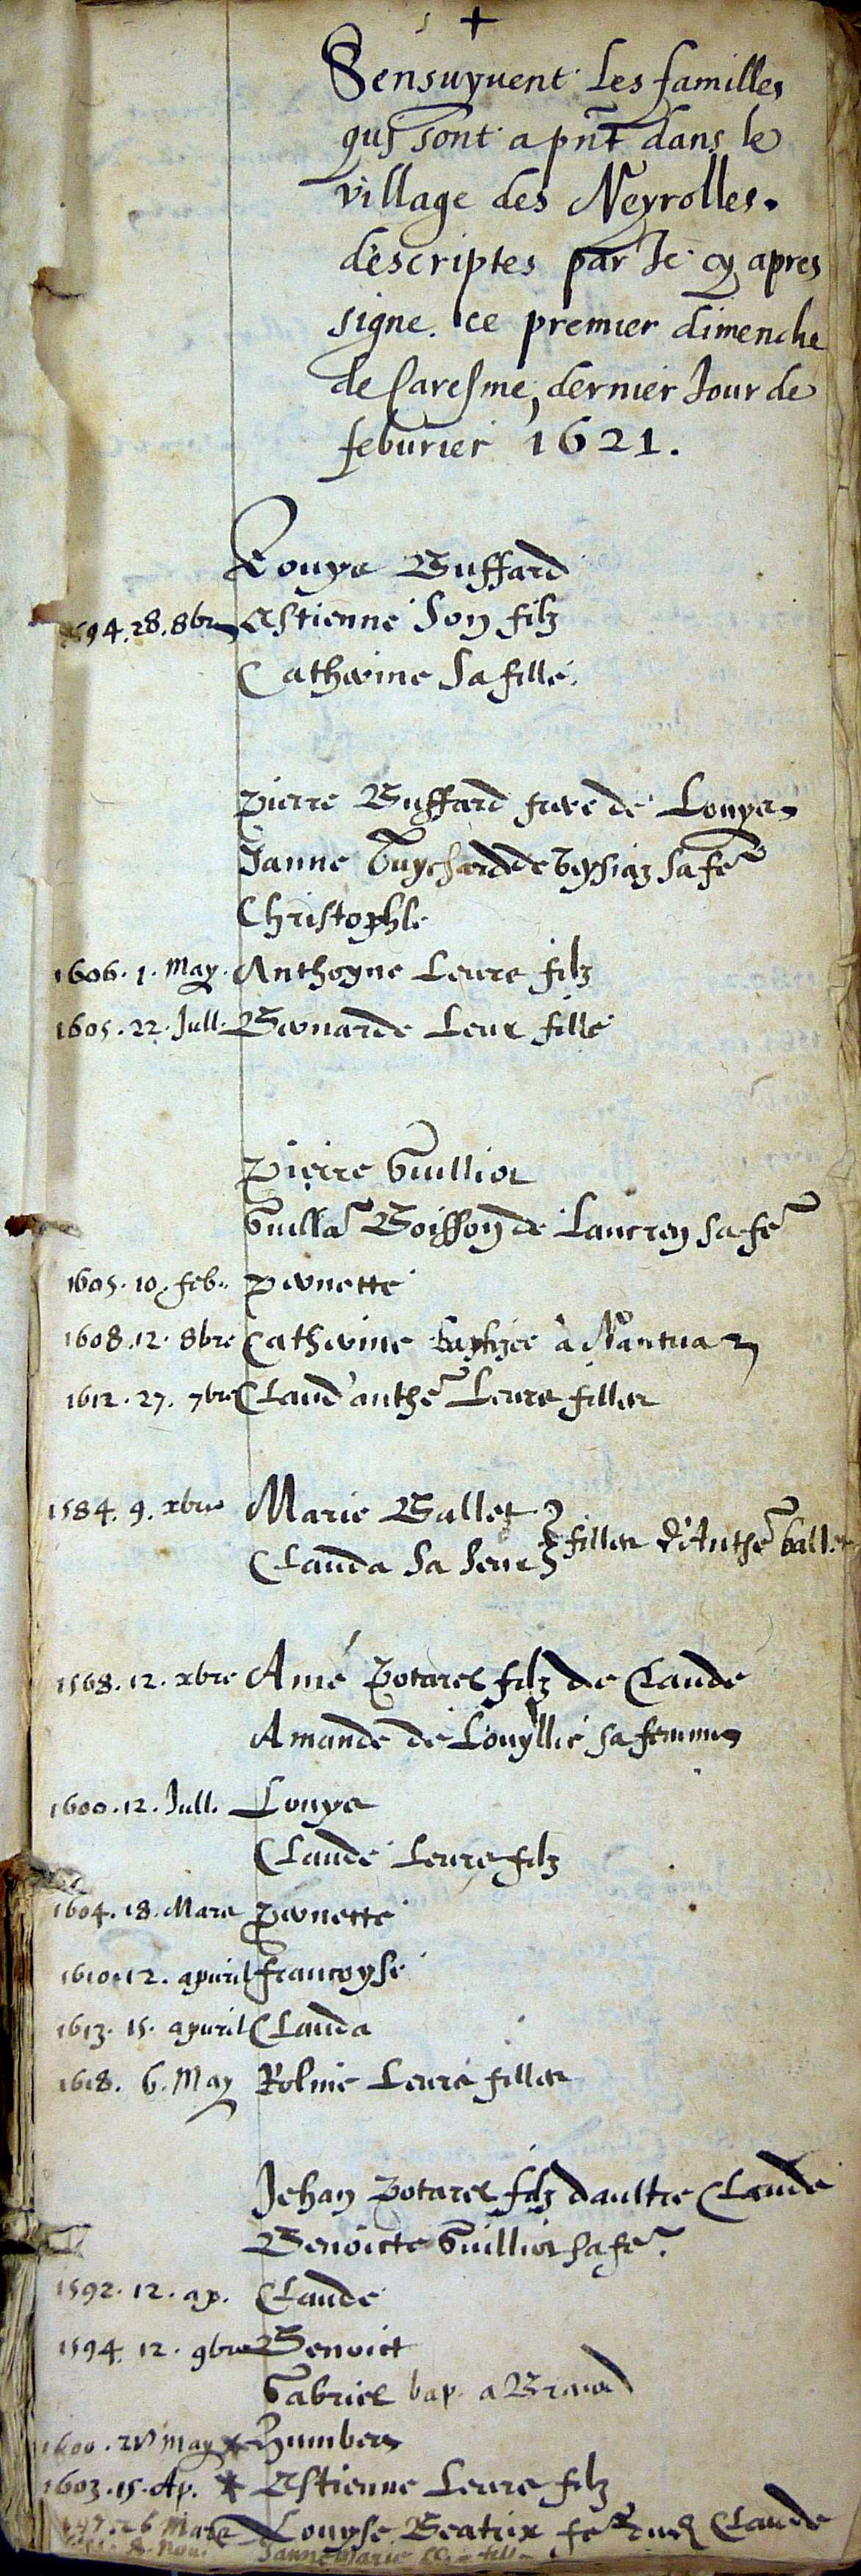 Sensuyuent les familles
qui sont a pnt dans le
village des Neyrolles.
descriptes par Je cy apres
signe. ce premier dimenche
de Caresme, dernier Jour de
feburier 1621.
Louys Buffard
1594. 28. 8bre Estienne son filz
Catherine sa fille.
Pierre Buffard frere de Louys
Janne Guychard de Veysiaz sa fe
Christophle
1606. 1. May. Anthoyne leurs filz
1605. 22. Jull. Bernarde leur fille
Pierre Guilliot
Guilla Boisson de Lancrey sa fe
1605. 10. feb. Pernette
1608. 12. 8bre Catherine baptizee à Nantua
1612. 27. 7bre Claud'anthe leurs filles
1584. 9. xbre Marie Ballet
Clauda sa seur filles d'Anthe ballet
1568. 12. xbre Amé Potarel filz de Claude
Amande de Louyllie sa femme
1600. 12. Jull. Louys
Claude leurs filz
1604. 18. Mars Pernette
1610. 12. apuril francoyse
1613. 15. apuril Clauda
1618. 6. May Roline leurs filles
Jehan Potarel filz daultre Claude
Benoicte Guilliot sa fe.
1592. 12. ap. Claude
1594. 12. 9bre Benoict
Gabriel bap. a Brenod
1600. May Humbert
1603. 15. Ap. Estienne leurs filz
26 Mars Louyse Beatrix fe dud Claude
8. Nou. Janne Marie